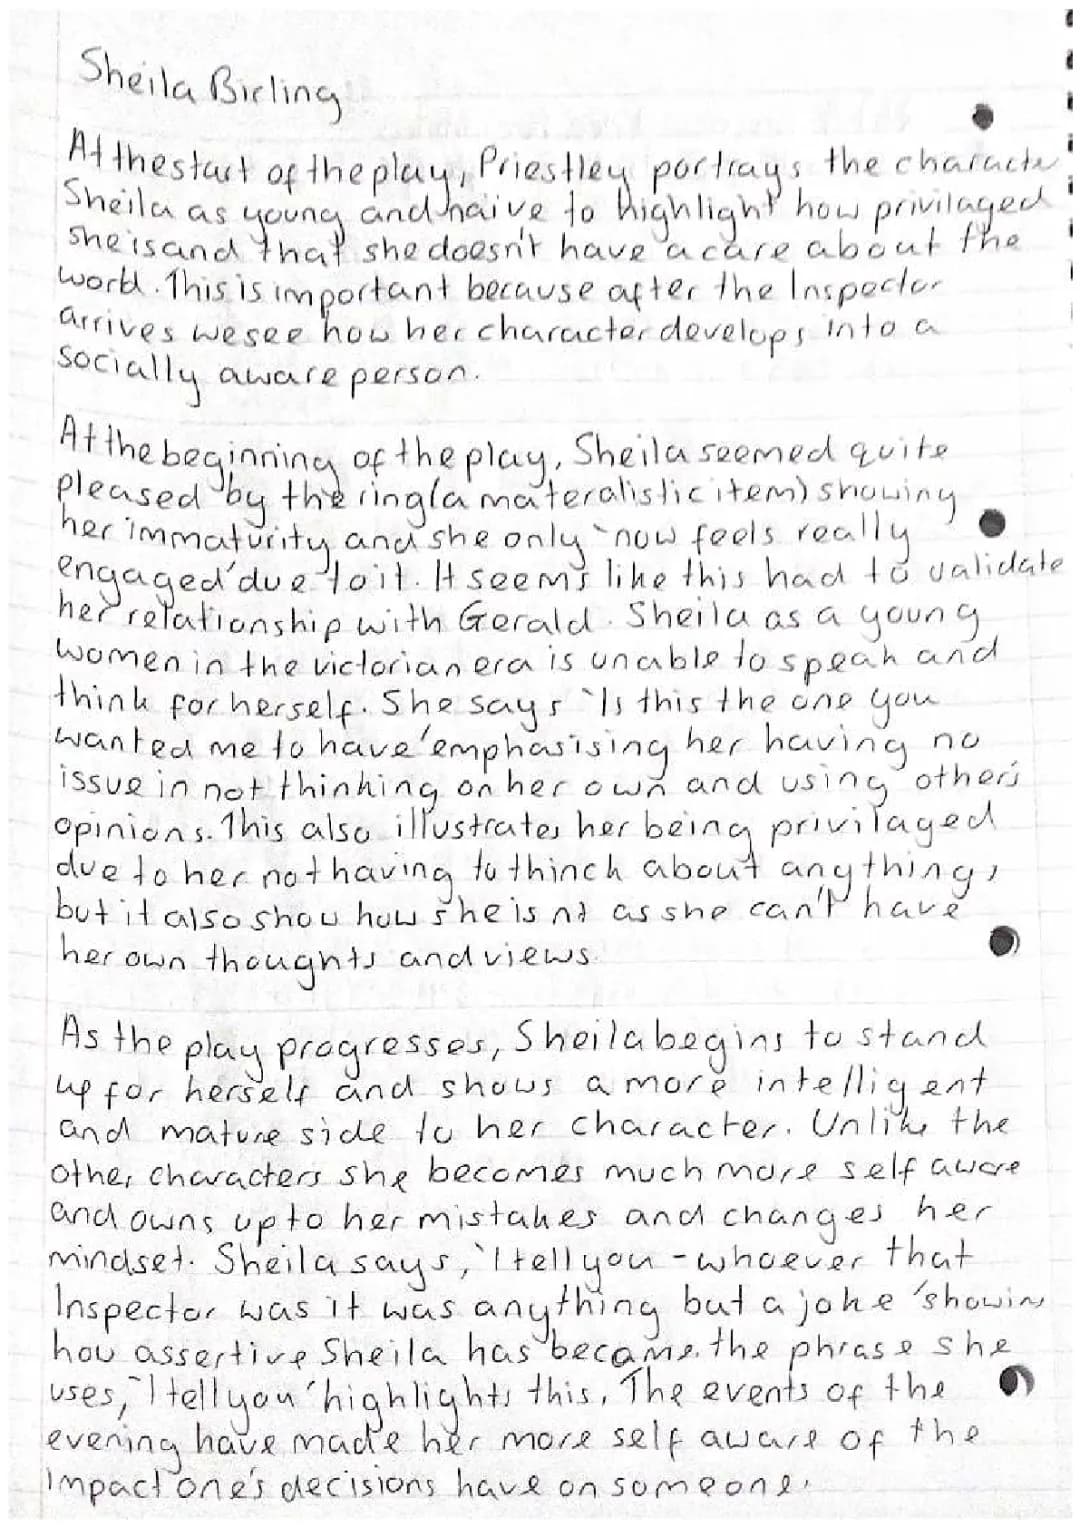 Sheila Birling
At the start of the play, Priestley portrays the characte
Sheila as young and naive to highlight how privilaged
she is and that she doesn't have a care about the
world. This is important because after the Inspector
arrives we see how her character develops into a
socially aware person.
At the beginning of the play, Sheila seemed quite
pleased by the ring (a materalistic item) showing
her immaturity and she only 'now feels really
engaged' due to it. It seems like this had to validate
her relationship with Gerald. Sheila as a young
women in the victorian era is unable to speak and
think for herself. She says 'Is this the one you
wanted me to have' emphasising her having no
issue in not thinking on her own and using other's
opinions. This also illustrates her being privilaged
due to her not having to thinck about anything,
but it also show how she is not as she can't have
her own thoughts and views.
As the play progresses, Sheila begins to stand
up for herself and shows a more intelligent
and mature side to her character. Unlike the
other characters she becomes much more self aware
and owns up to her mistakes and changes her
mindset. Sheila says, 'I tell you - whoever that
Inspector was it was anything but a joke' showin
how assertive Sheila has became. the phrase she
uses, 'I tell you' highlights this. The events of the
evening have made her more self aware of the
impact one's decisions have on someone.